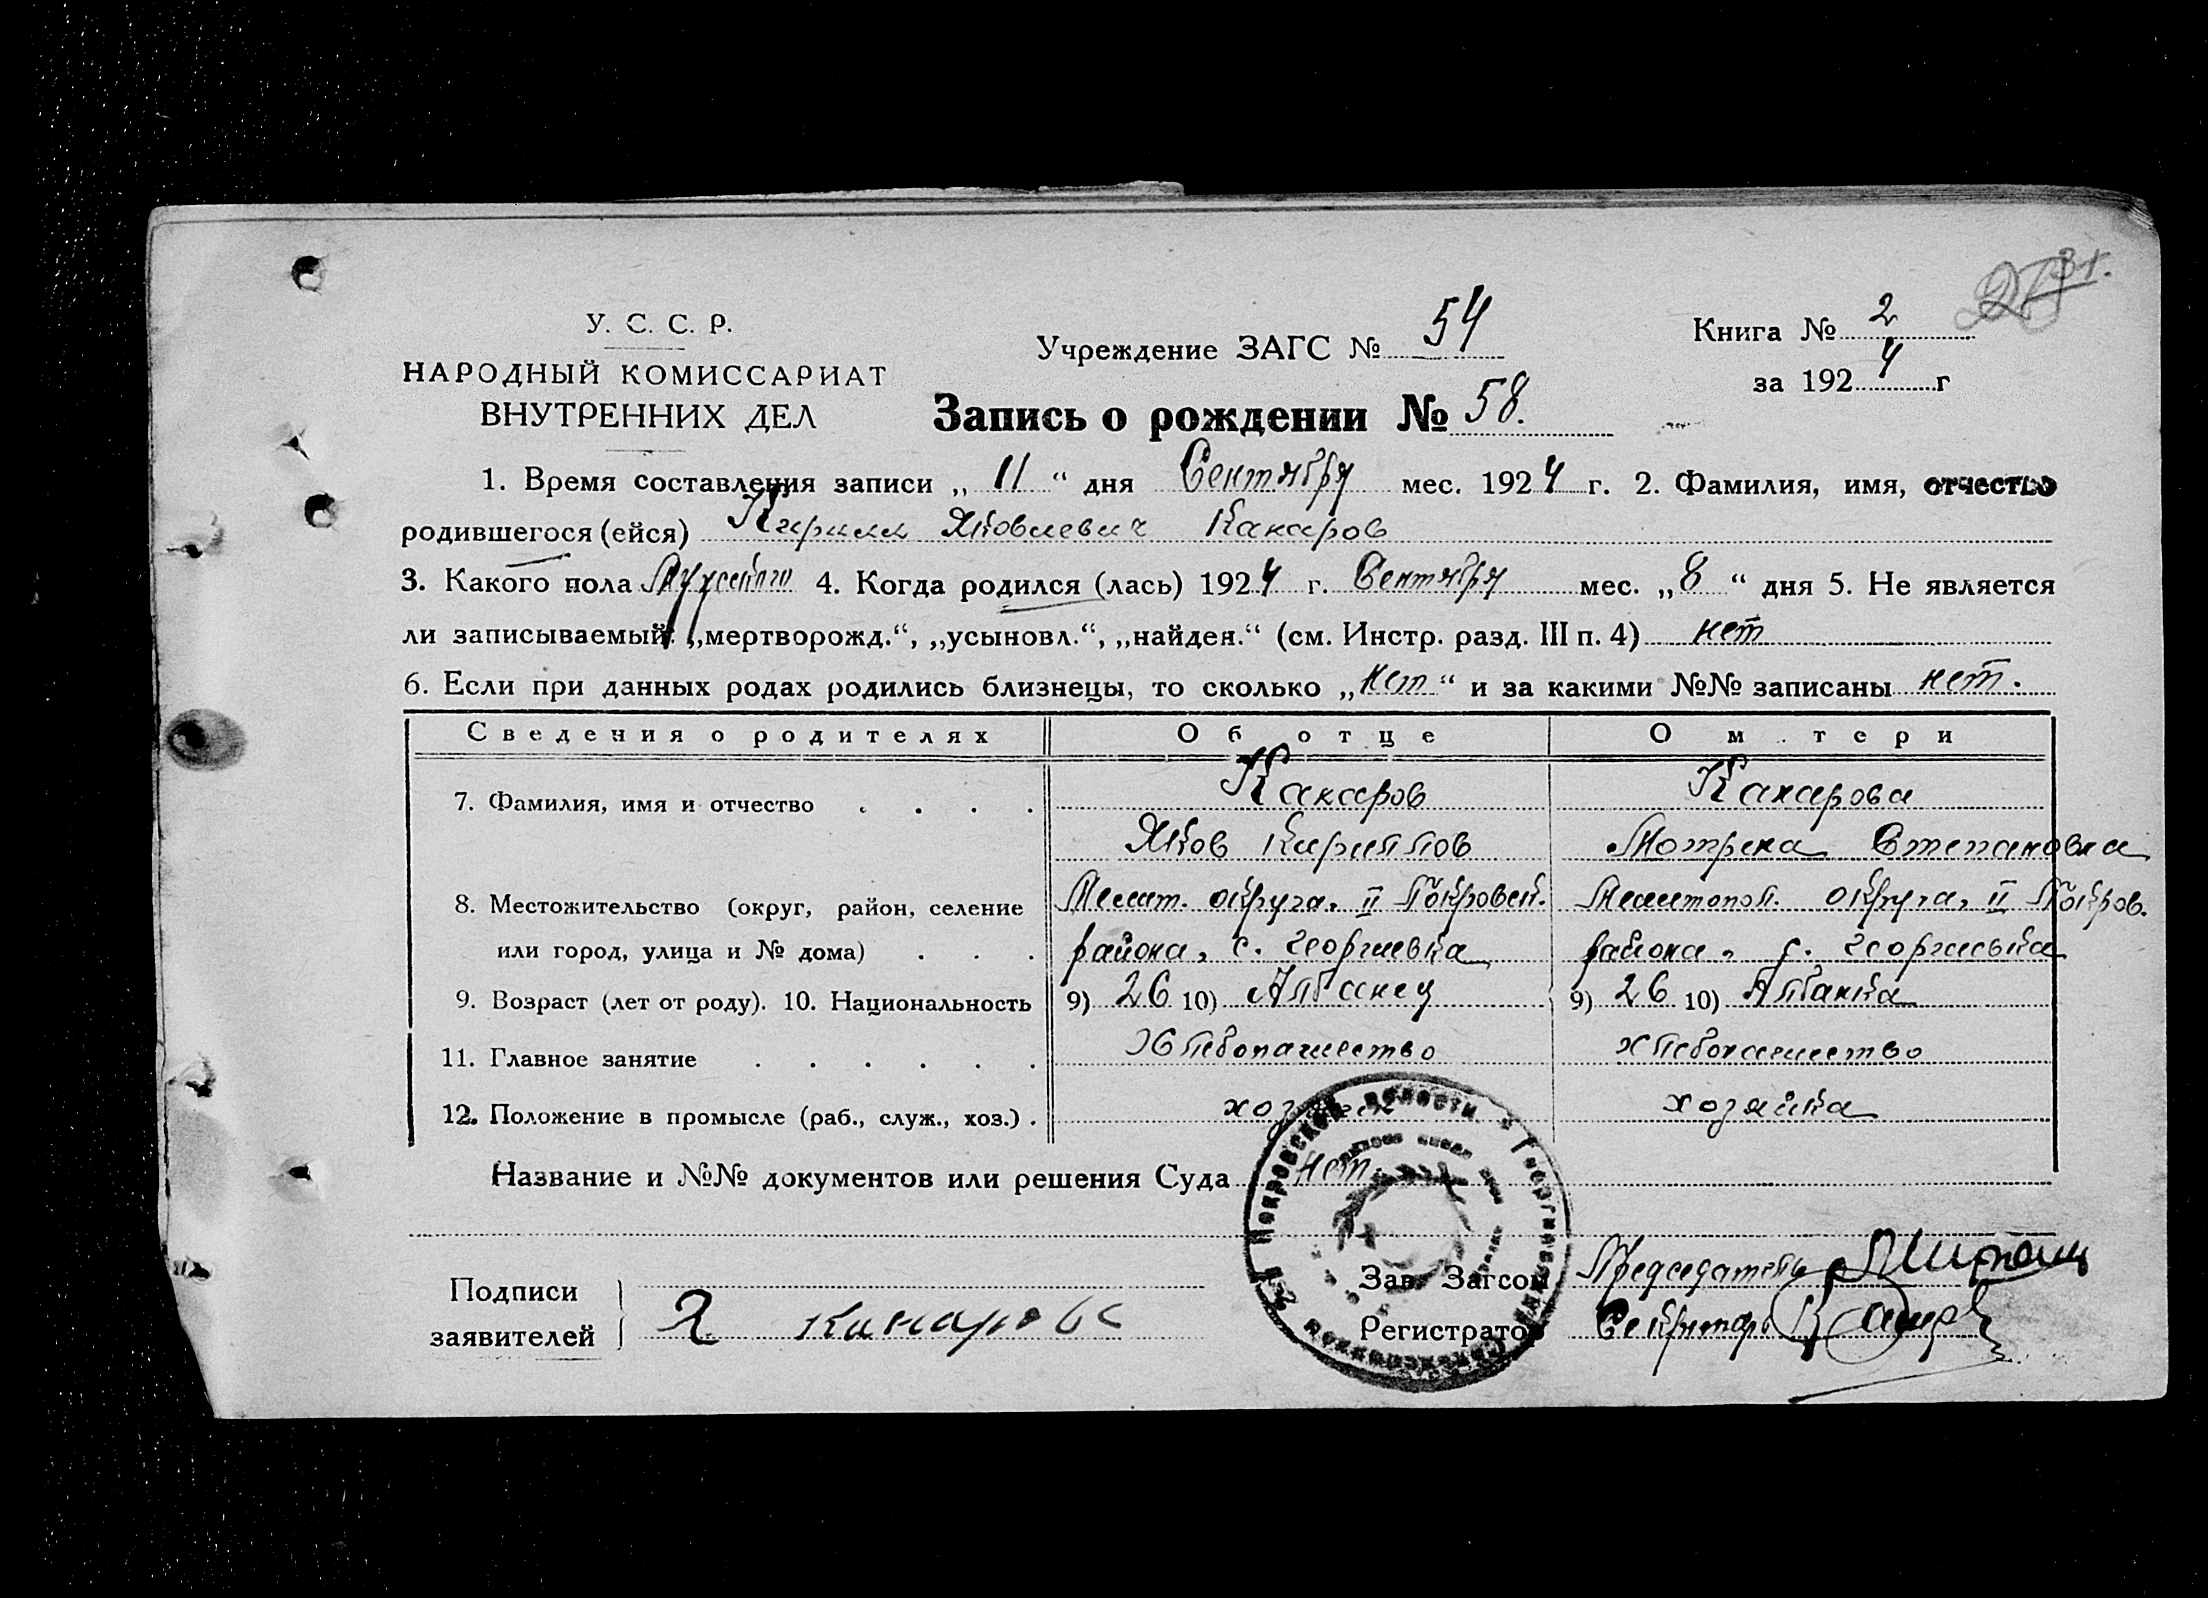 У. С. С. Р.
НАРОДНЫЙ КОМИССАРИАТ
ВНУТРЕННИХ ДЕЛ
Учреждение ЗАГС № 54
Книга № 2
за 1924 г
Запись о рождении № 58.
1. Время составления записи „ 11 “ дня Сентября мес. 1924 г. 2. Фамилия, имя, отчество
родившегося (ейся) Кирилл Яковлевич Канаров
3. Какого пола Мужского 4. Когда родился (лась) 1924 г. Сентября мес. „ 8 “ дня 5. Не является
ли записываемый: „мертворожд.“, „усыновл.“, „найден.“ (см. Инстр. разд. III п. 4) нет
6. Если при данных родах родились близнецы, то сколько „ нет “ и за какими №№ записаны нет.
Сведения о родителях Об отце О м тери
7. Фамилия, имя и отчество Канаров Канарова
Яков Кириллов Мотрена Степановна
8. Местожительство (округ, район, селение Мелит. округа, II Покровск. Мелитопол. округа, II Покров.
или город, улица и № дома) района, с. Георгиевка района, с. Георгиевка
9. Возраст (лет от роду). 10. Национальность 9) 26 10) Албанец 9) 26 10) Албанка
11. Главное занятие Хлебопашество хлебопашество
12. Положение в промысле (раб., служ., хоз.) хозяин хозяйка
Название и №№ документов или решения Суда нет.
Подписи
заявителей Я Канарова
Зав. Загсом Председатель
Регистратор Секретарь